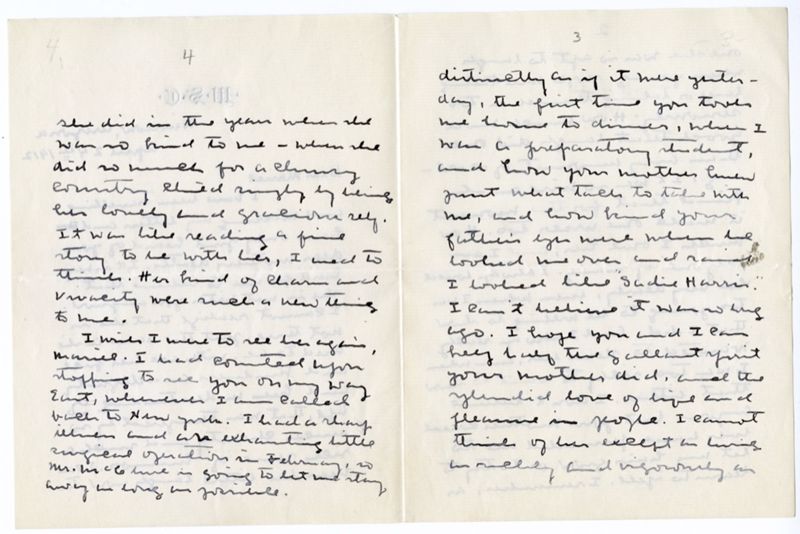 3
distinctly as if it were yester-
day, the first time you took
me home to dinner, when I
was a preparatory student,
and how your mother knew
just what talk to talk with
me, and how kind your
father's eyes were when he
looked me over and said
I looked like "Sadie Harris."
I can't believe it was so long
ago. I hope you and I can
keep half the gallant spirit
your mother did, and the
splendid love of life and
pleasure in people. I cannot
think of her except as living
as richly and vigorously as
4.
4
she did in the years when she
was so kind to me – when she
did so much for a clumsy
country child simply by being
her lovely and gracious self.
It was like reading a fine
story to be with her, I used to
think. Her kind of charm and
vivacity were such a new thing
to me.
I wish I were to see her again,
Mariel. I had counted upon
stopping to see you on my way
East, whenever I am called
back to New York. I had a sharp
illness and an exhausting little
surgical operation in February, so
Mr. McClure is going to let me stay
away as long as possible.